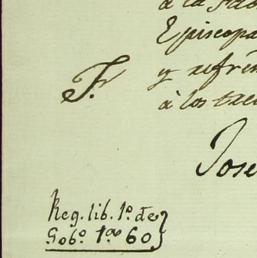 à la
Episcopa
F. y refren
à los
Jose
Reg. lib. 1º. de
Gobº. 60